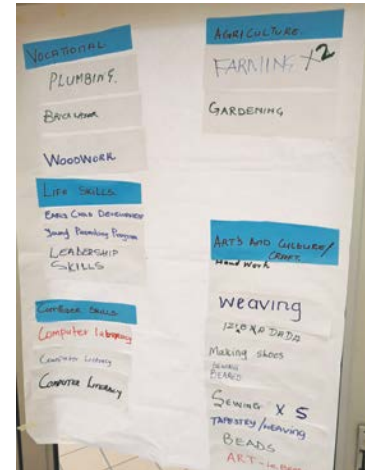 VOCATIONAL
PLUMBING.
BRICK
WOODWORK
LIFE SKILLS
EARLY CHILD DEVELOPMENT
Young Parenting Program
LEADERSHIP
SKILLS
COMPUTER SKILLS
Computer
Computer Literacy
COMPUTER LITERACY
AGRICULTURE.
FARMING X2
GARDENING
ARTS AND CULTURE/
CRAFT.
Hand Work
weaving
DADA
Making shoes
SEWING
BEADED
SEWING X 5
TAPESTRY/WEAVING
BEADS